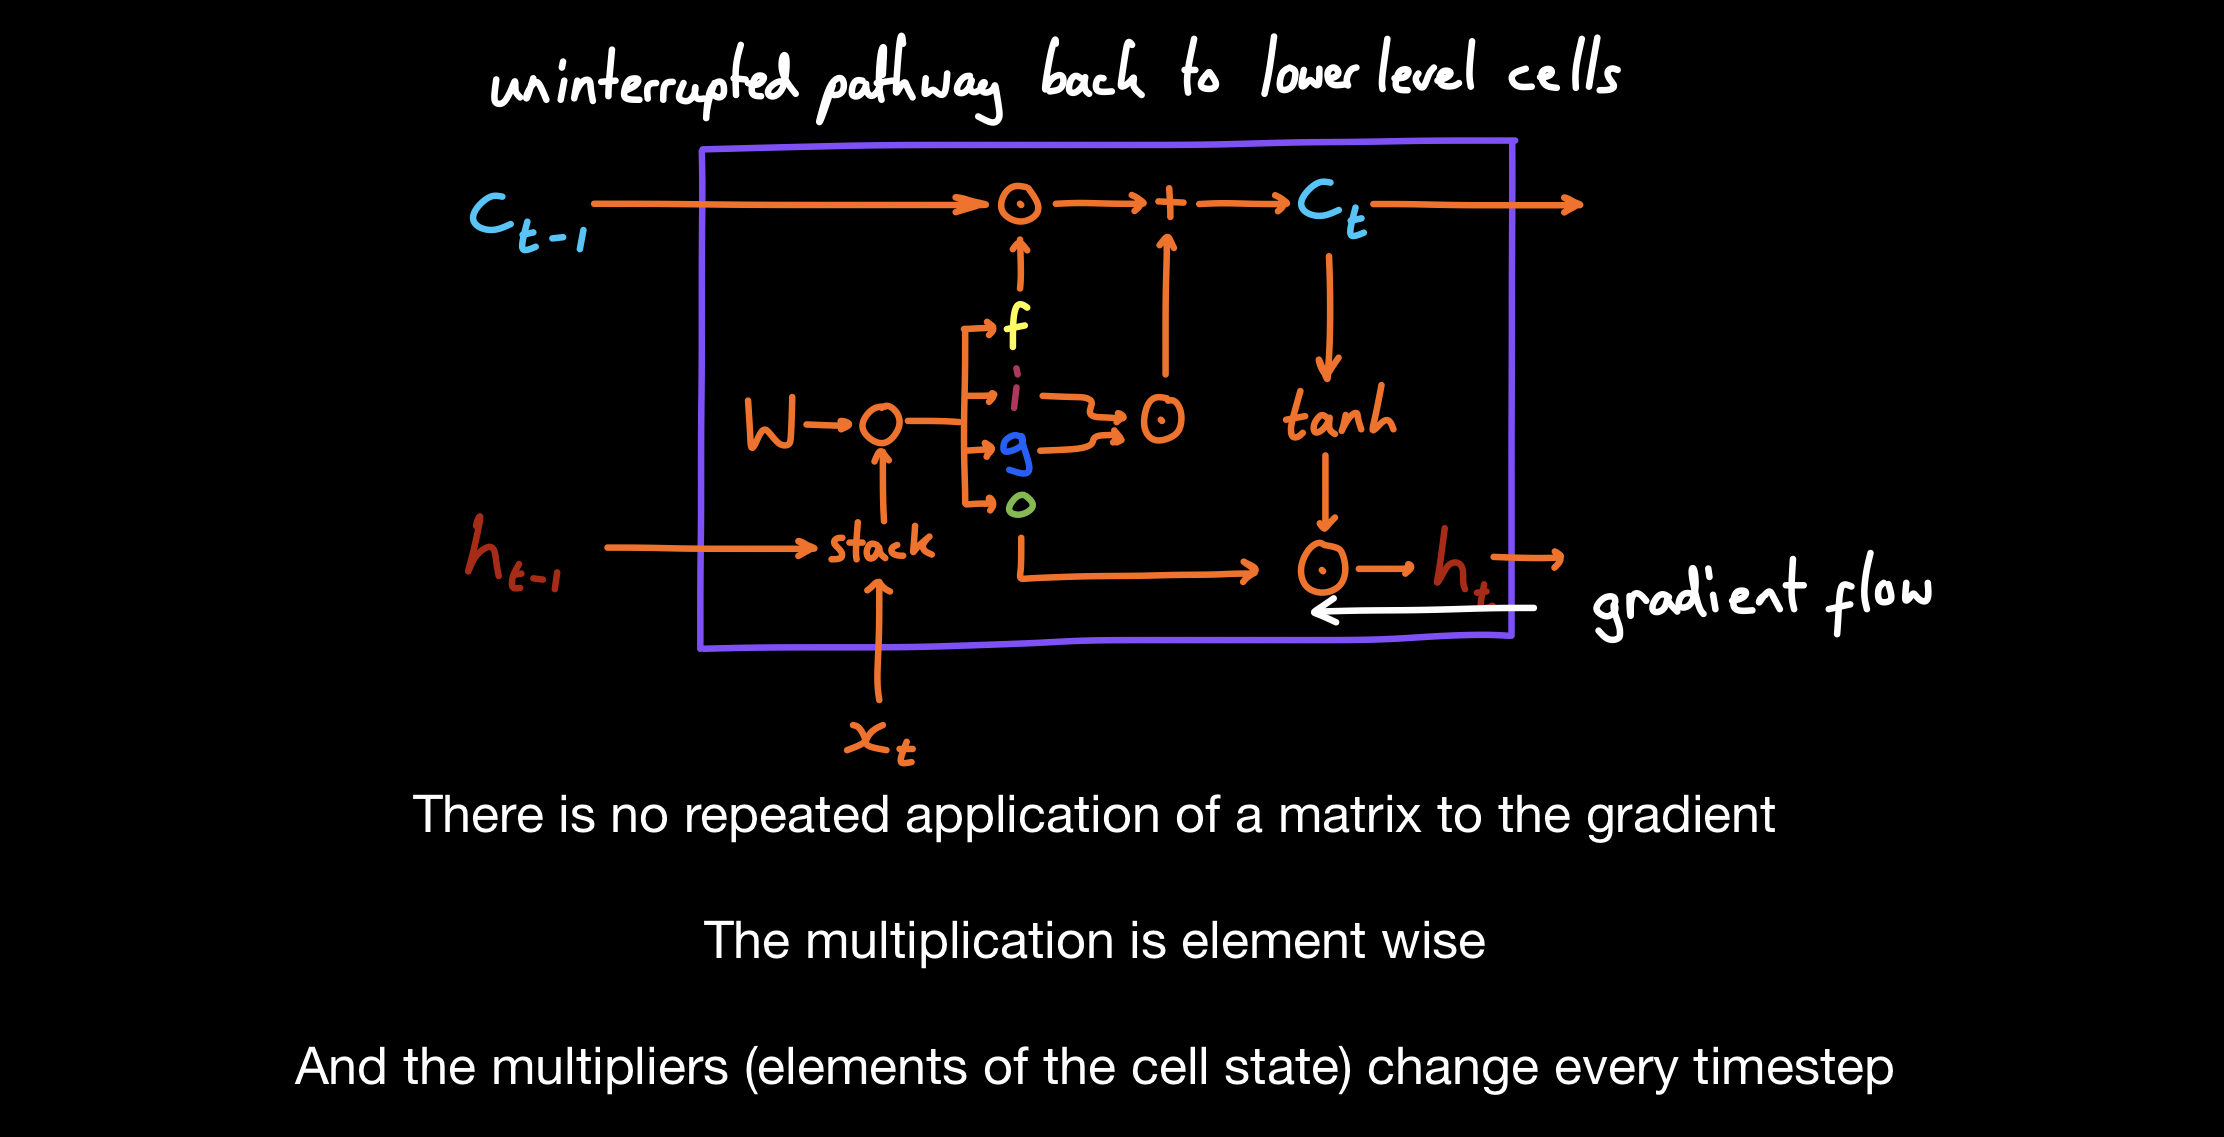 uninterrupted pathway back to lower level cells
Ct-1 + Ct
f
i
W g tanh
o
ht-1 stack ht
gradient flow
xt
There is no repeated application of a matrix to the gradient
The multiplication is element wise
And the multipliers (elements of the cell state) change every timestep